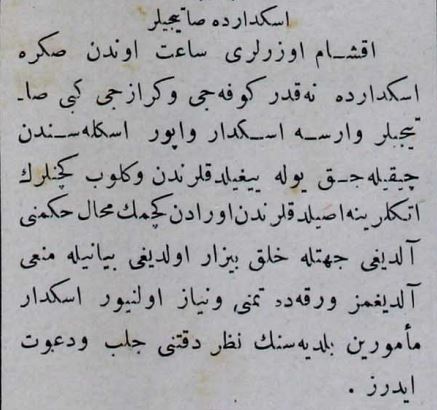 اسكدارده صاتيجيلر
اقشـام اوزرلرى ساعت اوندن صكره
اسكدارده نه‌قدر كوفه‌جى وكرازجى كبى صا-
تيجيلر وارسـه اسـكدار واپور اسكله‌سـندن
چيقيله‌جـق يوله ييغيلدقلرندن وكلوب كچنلرك
اتكلرينه اصيلدقلرندن اورادن كچمك محال حكمنى
آلديغى جهتله خلق بيزار اولديغى بيانيله منعى
آلديغمز ورقه‌ده تمنى ونياز اولنيور اسكدار
مأمورين بلديه‌سنك نظر دقتنى جلب ودعوت
ايدرز .